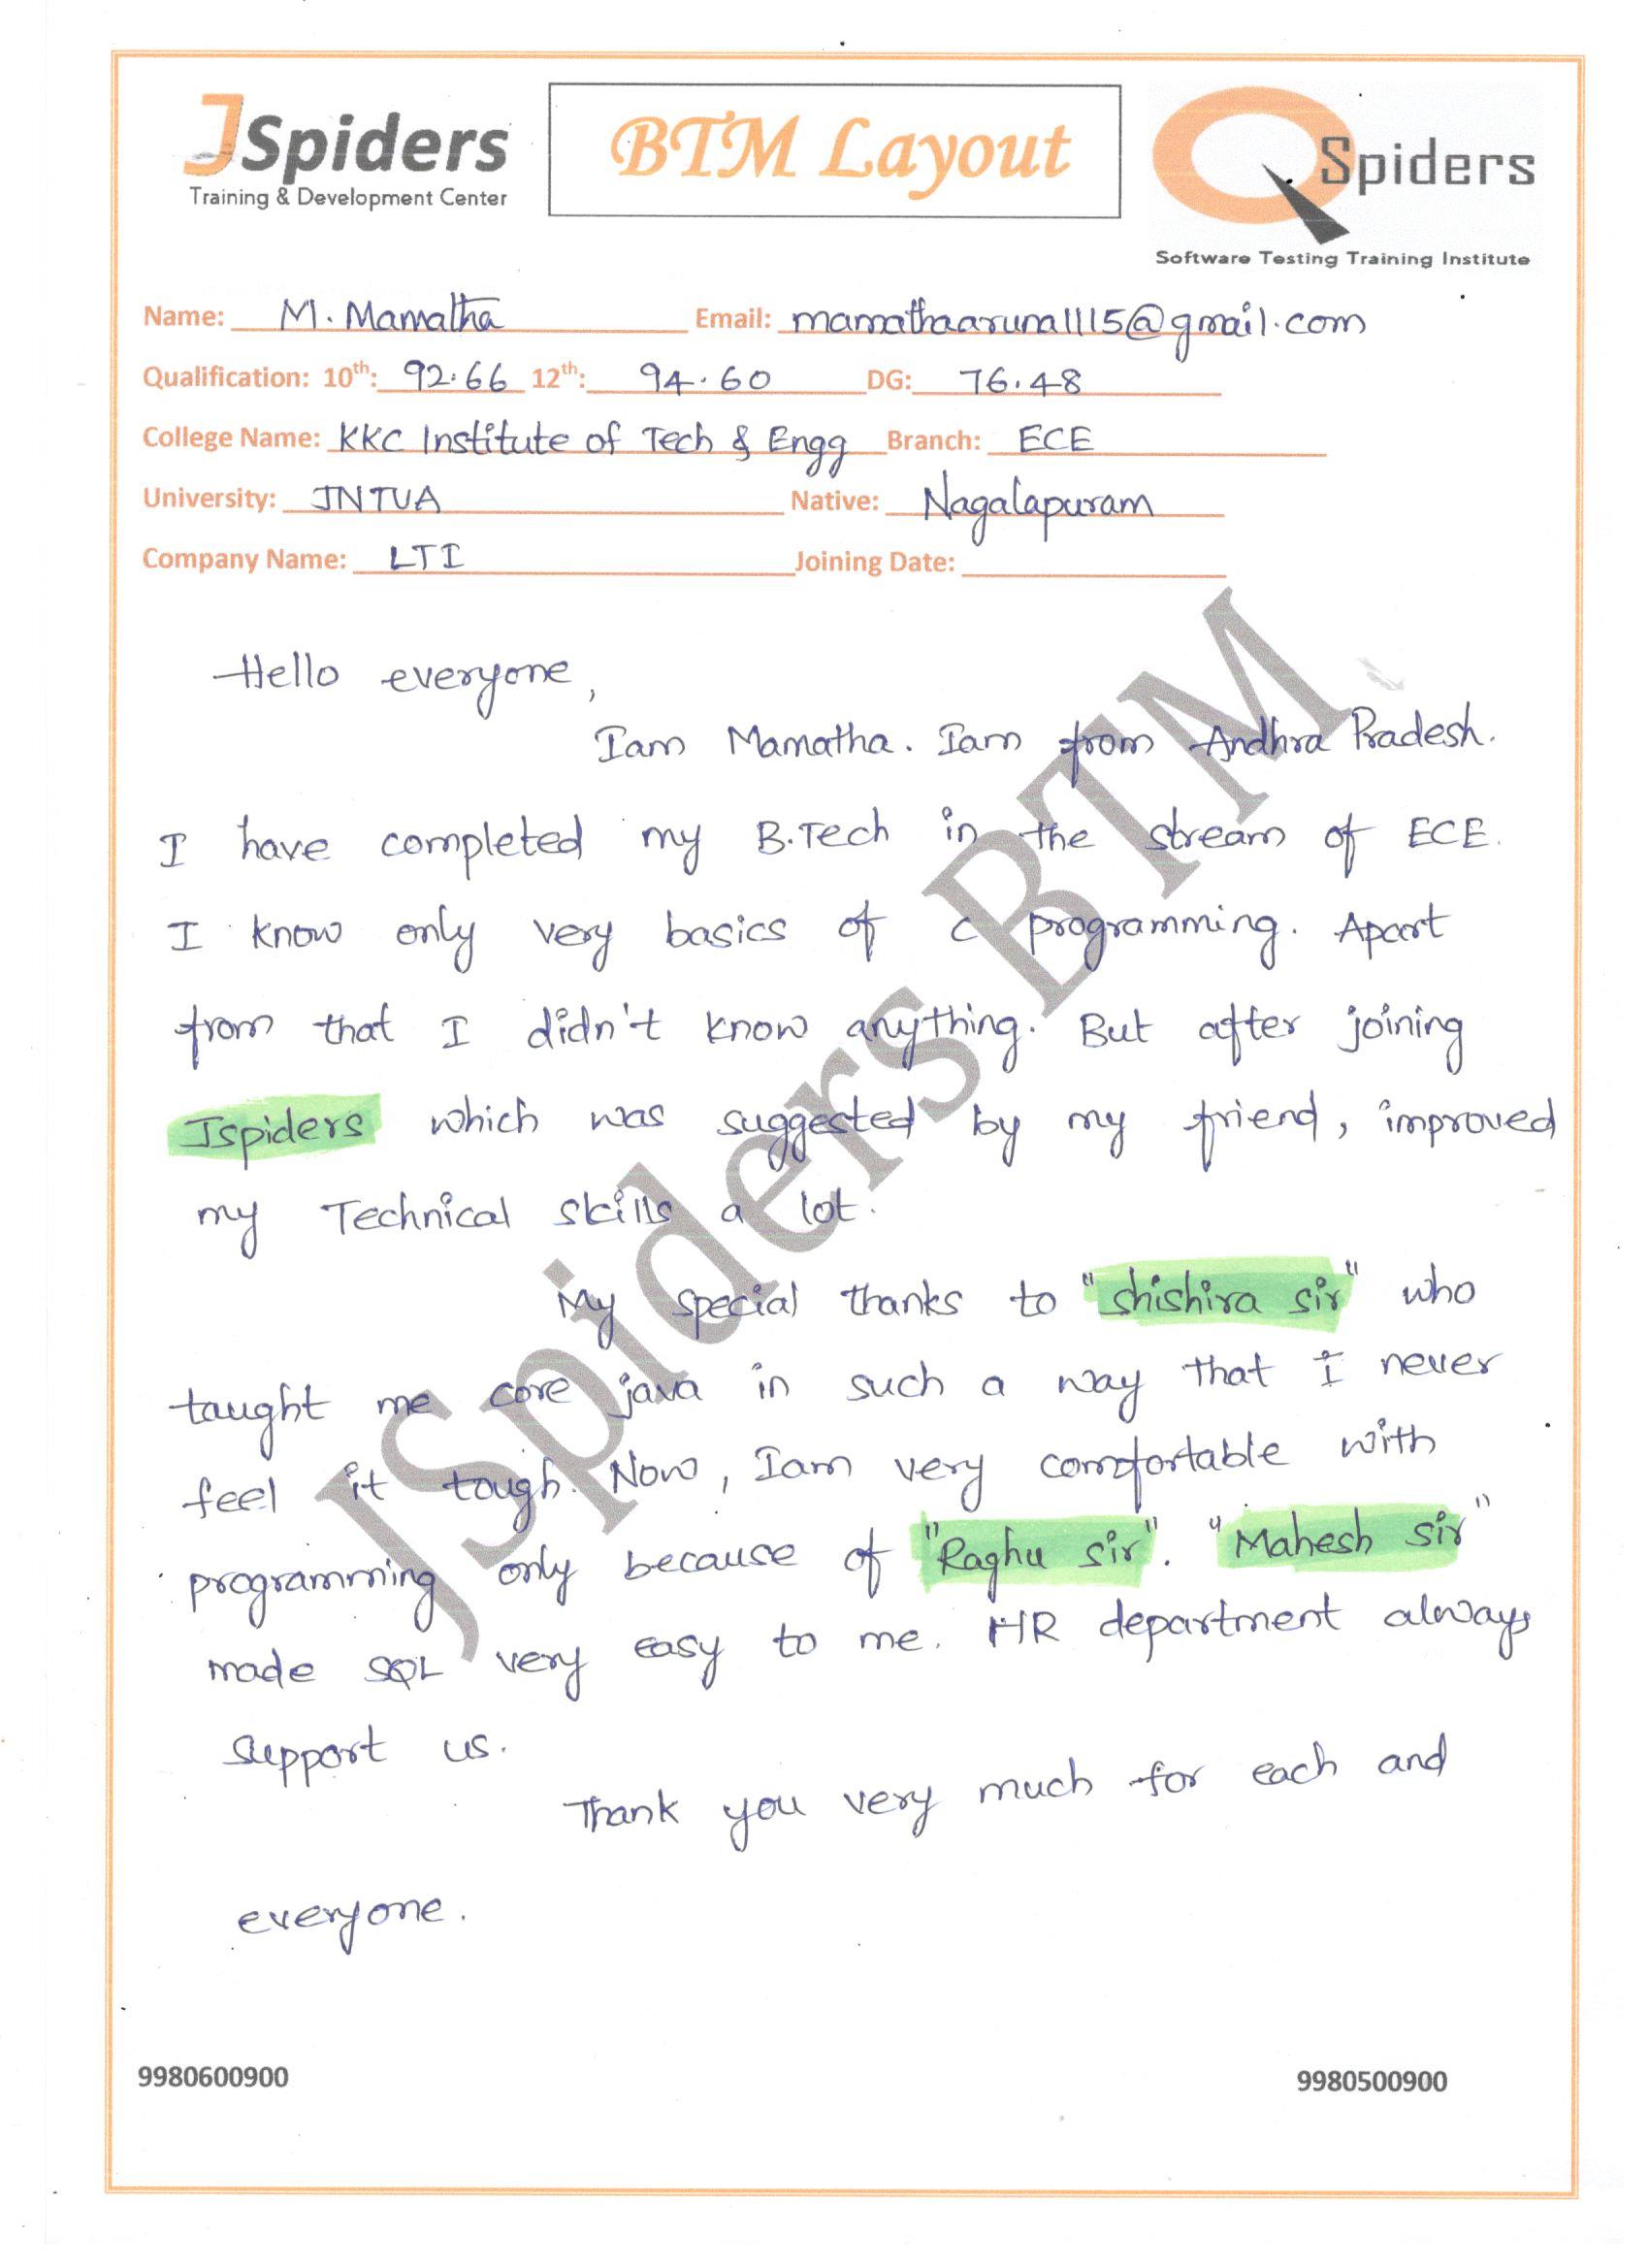 JSpiders
Training & Development Center
BTM Layout
QSpiders
Software Testing Training Institute
Name: M. Mamatha Email: mamathaaruna1115@gmail.com
Qualification: 10th: 92.66 12th: 94.60 DG: 76.48
College Name: KKC Institute of Tech & Engg Branch: ECE
University: JNTUA Native: Nagalapuram
Company Name: LTI Joining Date:
Hello everyone,
Iam Mamatha. Iam from Andhra Pradesh.
I have completed my B.Tech in the stream of ECE.
I know only very basics of c programming. Apart
from that I didn't know anything. But after joining
Jspiders which was suggested by my friend, improved
my Technical skills a lot.
My special thanks to "shishira sir" who
taught me core java in such a way that I never
feel it tough. Now, Iam very comfortable with
programming only because of "Raghu sir". "Mahesh sir"
made SQL very easy to me. HR department always
support us.
Thank you very much for each and
everyone.
JSpiders BTM
9980600900 9980500900